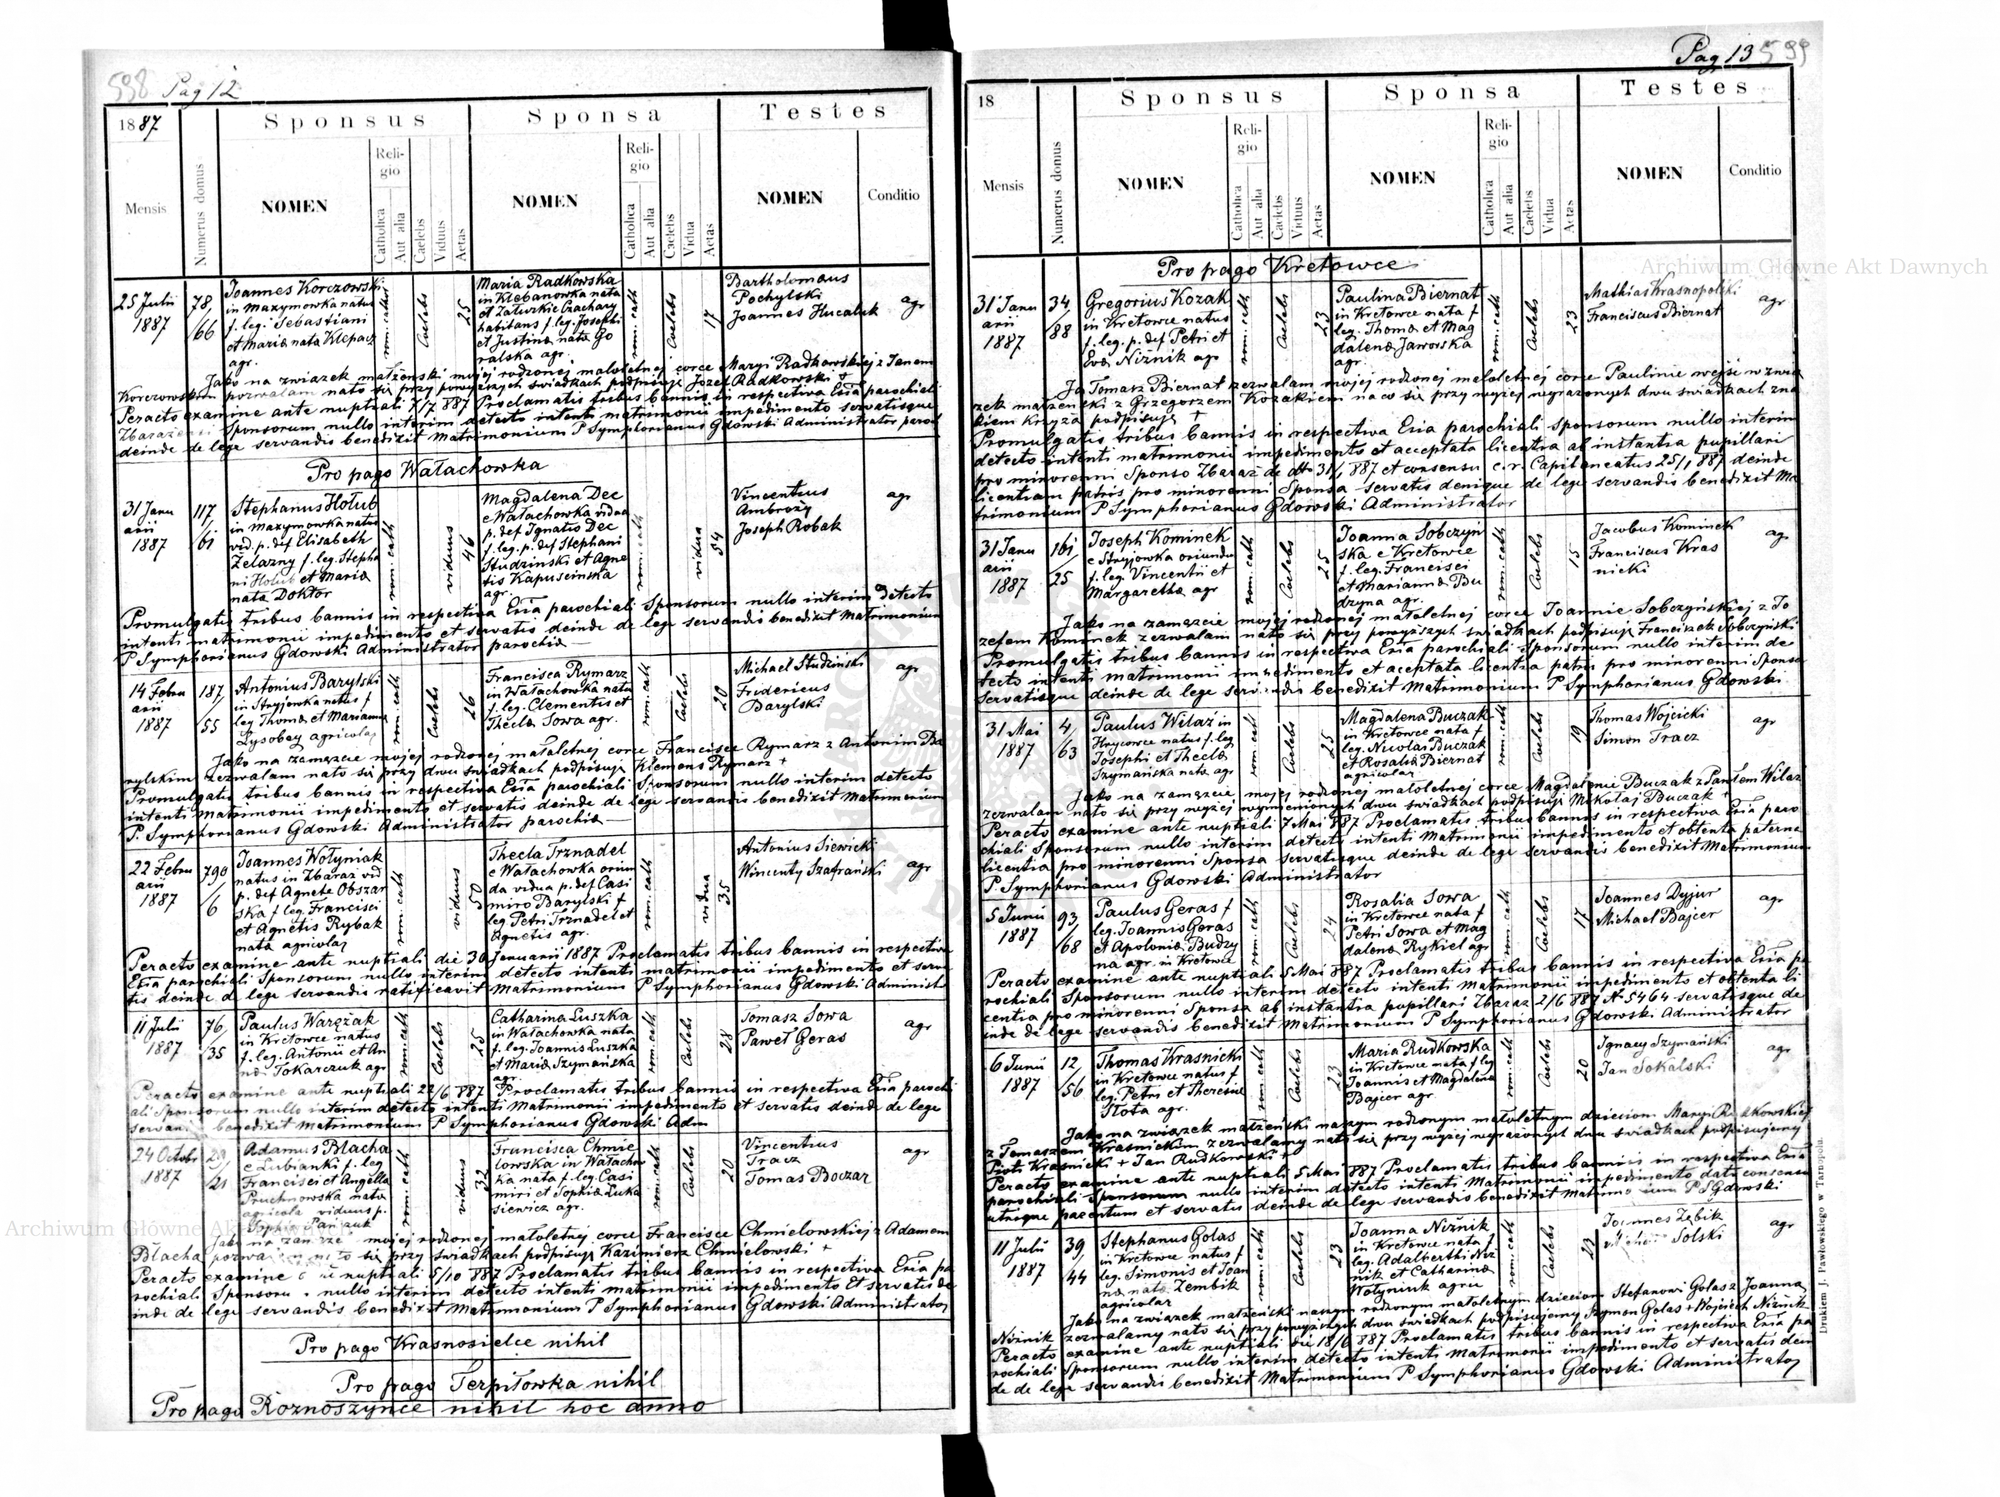 598 Pag 12
1887
Sponsus
Sponsa
Testes
Mensis
Numerus domus
NOMEN
Religio
Catholica
Aut alia
Caelebs
Viduus
Aetas
NOMEN
Religio
Catholica
Aut alia
Caelebs
Vidua
Aetas
NOMEN
Conditio
25 Julii
1887
78/66
Joannes Korczowski
in Maxymowka natus
f. leg. Sebastiani
et Maria nata Klepacz
agr.
rom. cath
Caelebs
25
Maria Radkowska
in Klebanowka nata
et Załuskie Czachary
habitans f. leg. Josephi
et Justina nata Go
ralska agr.
rom. cath
Caelebs
17
Bartholomaus
Pochylski
Joannes Hucaluk
agr
Jako na związek małżeński mojej rodzonej małoletniej corce Maryi Radkowskiej z Janem
Korczowskim pozwalam nato się przy powyższych świadkach podpisuję Jozef Radkowski +
Peracto examine ante nuptiali 7/7 887 Proclamatis tribus bannis in respectiva Ecclia parochiali
Sponsorum nullo interim detecto intenti matrimonii impedimento servatisque
deinde de lege servandis benedixit Matrimonium P Symphorianus Gdowski Administrator paroch
Pro pago Wałachowka
31 Janu
arii
1887
117/61
Stephanus Hołub
in Maxymowka natus
vid. p. def Elisabeth
Żelazny f. leg. Stepha
ni Hołub et Maria
nata Doktor
rom. cath
viduus
46
Magdalena Dec
e Wałachowka vidua
p. def Ignatio Dec
f. leg. p. def Stephani
Studzinski et Agne
tis Kapuscinska
agr.
rom. cath
vidua
54
Vincentius
Ambroży
Joseph Robak
agr
Promulgatis tribus bannis in respectiva Ecclia parochiali Sponsorum nullo interim detecto
intenti matrimonii impedimento et servatis deinde de lege servandis benedixit Matrimonium
P Symphorianus Gdowski Administrator parochia
14 Febru
arii
1887
187/55
Antonius Barylski
in Stryjowka natus f
leg Thoma et Marianna
Łysobey agricolar
rom. cath
Caelebs
26
Francisca Rymarz
in Wałachowka nata
f. leg. Clementis et
Thecla Sowa agr.
rom. cath
Caelebs
20
Michael Studzinski
Fridericus
Barylski
agr
Jako na zamęzcie mojej rodzonej małoletnej corce Francisce Rymarz z Antonim Ba
rylskim zezwalam nato się przy dwu świadkach podpisuję Klemens Rymarz +
Promulgatis tribus bannis in respectiva Ecclia parochiali Sponsorum nullo interim detecto
intenti matrimonii impedimento et servatis deinde de lege servandis benedixit Matrimonium
P. Symphorianus Gdowski Administrator parochia
22 Febru
arii
1887
790/6
Joannes Wołyniak
natus in Zbaraż vid
p. def Agnete Obszar
ska f leg. Francisci
et Agnetis Rybak
nata agricolar
rom. cath
viduus
50
Thecla Trznadel
e Wałachowka oriun
da vidua p. def Casi
miro Barylski f
leg Petri Trznadel et
Agnetis agr.
rom. cath
vidua
35
Antonius Siewicki
Wincenty Szafrański
agr
Peracto examine ante nuptiali die 30 Januarii 1887 Proclamatis tribus bannis in respectiva
Ecclia parochiali Sponsorum nullo interim detecto intenti matrimonii impedimento et serva
tis deinde de lege servandis ratificavit Matrimonium P Symphorianus Gdowski Administ
11 Julii
1887
76/35
Paulus Warężak
in Kretowce natus
f. leg. Antonii et An
na Tokarczuk agr
rom. cath
Caelebs
25
Catharina Łuszka
in Wałachowka nata
f. leg. Joannis Łuszka
et Maria Szymańska
agr.
rom. cath
Caelebs
28
Tomasz Sowa
Paweł Geras
agr
Peracto examine ante nuptiali 22/6 887 Proclamatis tribus bannis in respectiva Ecclia parochi
ali Sponsorum nullo interim detecto intenti Matrimonii impedimento et servatis deinde de lege
servandis benedixit Matrimonium P Symphorianus Gdowski Adm
24 Octobr
1887
29/21
Adamus Blacha
e Lubianki f. leg
Francisci et Angella
Pruchnowska nata
agricola viduus p.
rom. cath
viduus
32
Francisca Chmie
lowska in Wałacho
ka nata f. leg. Casi
miri et Sophia Łuka
siewicz agr.
rom. cath
Caelebs
20
Vincentius
Tracz
Tomas Boczar
agr
Jako na zamęzcie mojej rodzonej małoletniej corce Francisce Chmielowskiej z Adamem
Błacha pozwalam nato się przy świadkach podpisuję Kazimierz Chmielowski +
Peracto examine ante nuptiali 5/10 887 Proclamatis tribus bannis in respectiva Ecclia pa
rochiali Sponsorum nullo interim detecto intenti matrimonii impedimento et servatis de
inde de lege servandis benedixit Matrimonium P Symphorianus Gdowski Administrator
Pro pago Krasnosielce nihil
Pro pago Terpiłowka nihil
Pro pago Roznoszynce nihil hoc anno
Pag 13 599
18
Sponsus
Sponsa
Testes
Mensis
Numerus domus
NOMEN
Religio
Catholica
Aut alia
Caelebs
Viduus
Aetas
NOMEN
Religio
Catholica
Aut alia
Caelebs
Vidua
Aetas
NOMEN
Conditio
Pro pago Kretowce
31 Janu
arii
1887
34/88
Gregorius Kozak
in Kretowce natus
f. leg. p. def Petri et
Eva Niżnik agr
rom. cath
Caelebs
23
Paulina Biernat
in Kretowce nata f
leg. Thoma et Mag
dalena Jaworska
agr.
rom. cath
Caelebs
23
Mathias Krasnopolski
Franciscus Biernat
agr
Ja Tomasz Biernat zezwalam mojej rodzonej małoletniej corce Paulinie wejść w zwią
zek małżeński z Grzegorzem Kozakiem na co się przy wyżej wyrażonych dwu świadkach zna
kiem krzyża podpisuję +
Promulgatis tribus bannis in respectiva Ecclia parochiali Sponsorum nullo interim
detecto intenti matrimonii impedimento et acceptata licentia ab instantia pupillari
pro minorenni Sponso Zbaraż de dto 31/1 887 et consensu c. r. Capitaneatus 25/1 887 deinde
licentiam patris pro minorenni Sponsa servatis denique de lege servandis benedixit Ma
trimonium P Symphorianus Gdowski Administrator
31 Janu
arii
1887
161/25
Joseph Kominek
e Stryjowka oriundus
f. leg. Vincentii et
Margaretha agr
rom. cath
Caelebs
25
Joanna Sobczyń
ska e Kretowce
f. leg. Francisci
et Marianna Bu
dzyna agr.
rom. cath
Caelebs
15
Jacobus Kominek
Franciscus Kras
nicki
agr
Jako na zamęzcie mojej rodzonej małoletniej corce Joannie Sobczyńskiej z Jo
zefem Kominek zezwalam nato się przy powyższych świadkach podpisuję Franciszek Sobczyński
Promulgatis tribus bannis in respectiva Ecclia parochiali Sponsorum nullo interim de
tecto intenti matrimonii impedimento et aceptata licentia patris pro minorenni Sponsa
servatisque deinde de lege servandis benedixit Matrimonium P Symphorianus Gdowski
31 Mai
1887
4/63
Paulus Wilaż in
Hrycowce natus f. leg
Josephi et Thecla
Szymańska nata agr
rom. cath
Caelebs
25
Magdalena Buczak
in Kretowce nata f
leg. Nicolai Buczak
et Rosalia Biernat
agricolar
rom. cath
Caelebs
19
Thomas Wojcicki
Simon Tracz
agr
Jako na zamęzcie mojej rodzonej małoletniej corce Magdalenie Buczak z Pawłem Wilaz
zezwalam nato się przy wyżej wymienionych dwu świadkach podpisuję Mikołaj Buczak +
Peracto examine ante nuptiali 7 Mai 887 Proclamatis tribus bannis in respectiva Ecclia paro
chiali Sponsorum nullo interim detecto intenti Matrimonii impedimento et obtenta paterna
licentia pro minorenni Sponsa servatisque deinde de lege servandis benedixit Matrimonium
P. Symphorianus Gdowski Administrator
5 Junii
1887
93/68
Paulus Geras f
leg. Joannis Geras
et Apolonia Budzy
na agr. in Kretowce
rom. cath
Caelebs
24
Rosalia Sowa
in Kretowce nata f
Petri Sowa et Mag
dalena Rykiel agr
rom. cath
Caelebs
17
Joannes Dyjur
Michael Bajcer
agr
Peracto examine ante nuptiali 5 Mai 887 Proclamatis tribus bannis in respectiva Ecclia pa
rochiali Sponsorum nullo interim detecto intenti Matrimonii impedimento et obtenta li
centia pro minorenni Sponsa ab instantia pupillari Zbaraz 2/6 887 № 5464 servatisque de
inde de lege servandis benedixit Matrimonium P Symphorianus Gdowski Administrator
6 Junii
1887
12/56
Thomas Krasnicki
in Kretowce natus f
leg. Petri et Theresiae
Słota agr.
rom. cath
Caelebs
23
Maria Rudkowska
in Kretowce nata f leg
Joannis et Magdalena
Bajcer agr.
rom. cath
Caelebs
20
Ignacy Szymański
Jan Sokalski
agr
Jako na związek małżeński naszym rodzonym małoletnym dzieciom Maryi Rudkowskiej
z Tomaszem Krasnickim zezwalamy nato się przy wyżej wyrażonych dwu świadkach podpisujemy
Piotr Krasnicki + Jan Rudkowski +
Peracto examine ante nuptiali 5 Mai 887 Proclamatis tribus bannis in respectiva Ecclia
parochiali Sponsorum nullo interim detecto intenti Matrimonii impedimento dato consensu
utrisque parentum et servatis deinde de lege servandis benedixit Matrimonium P S Gdowski
11 Julii
1887
39/44
Stephanus Golas
in Kretowce natus f
leg. Simonis et Joan
na nata Zembik
agricolar
rom. cath
Caelebs
23
Joanna Niżnik
in Kretowce nata f
leg. Adalberthi Niż
nik et Catharina
Wołyniuk agric
rom. cath
Caelebs
23
Joannes Zębik
Solski
agr
Jako na związek małżeński naszym rodzonym małoletnym dzieciom Stefanowi Golas z Joanną
Niżnik zezwalamy nato się przy powyższych dwu świadkach podpisujemy Szymon Golas + Wojciech Niżnik
Peracto examine ante nuptiali die 18/6 887 Proclamatis tribus bannis in respectiva Ecclia pa
rochiali Sponsorum nullo interim detecto intenti Matrimonii impedimento et servatis dein
de de lege servandis benedixit Matrimonium P Symphorianus Gdowski Administrator
Drukiem J. Pawłowskiego w Tarnopolu.
Archiwum Główne Akt Dawnych
Archiwum Główne Akt Dawnych